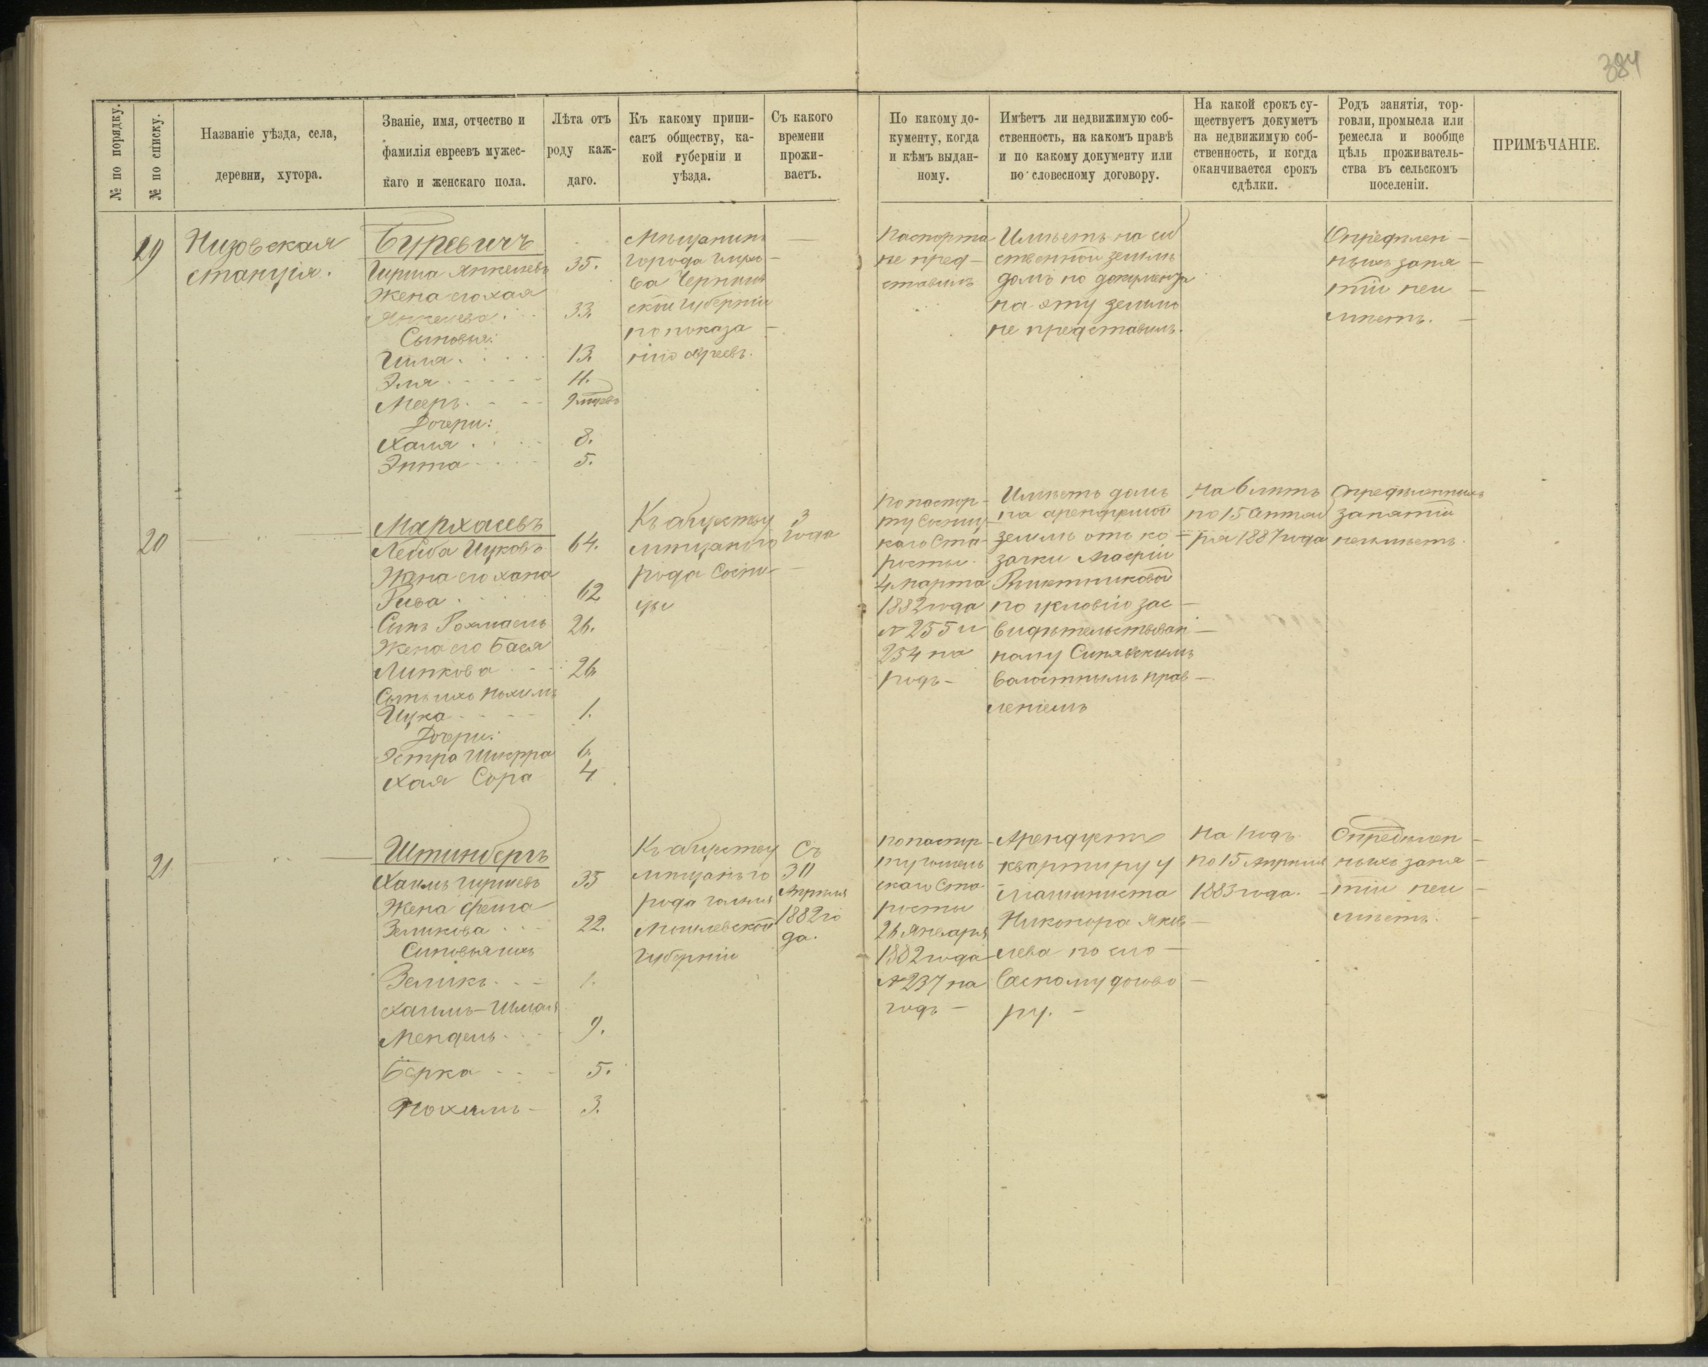 384
№ по порядку.
№ по списку.
Названіе уѣзда, села,
деревни, хутора.
Званіе, имя, отчество и
фамилія евреевъ мужес-
каго и женскаго пола.
Лѣта отъ
роду каж-
даго.
Къ какому припи-
санъ обществу, ка-
кой губерніи и
уѣзда.
Съ какого
времени
прожи-
ваетъ.
По какому до-
кументу, когда
и кѣмъ выдан-
ному.
Имѣетъ ли недвижимую соб-
ственность, на какомъ правѣ
и по какому документу или
по словесному договору.
На какой срокъ су-
ществуетъ докуметъ
на недвижимую соб-
ственность, и когда
оканчивается срокъ
сдѣлки.
Родъ занятія, тор-
говли, промысла или
ремесла и вообще
цѣль проживатель-
ства въ сельскомъ
поселеніи.
ПРИМѢЧАНІЕ.
19
Низовская
станція.
Гуревичъ
Гирша Янкелевъ 35.
Жена его Хая
33.
Сыновья:
Гиля 13.
Эля 11.
Мееръ
Дочери:
Халя 8.
Энта 5.
Мѣщанинъ
города
ской Губерніи
по показа
нію евреевъ.
Паспорта
не пред-
ставилъ
Имѣетъ на соб
ственной землѣ
домъ но документа
на эту землю
не представилъ.
Опредѣлен-
ныхъ заня-
тій неи
мѣетъ.
20
Мархасевъ
Лейба Ицковъ 64.
Жена его Хана
Рива 62
Сынъ 26.
Жена его Бася
Липкова 26
Сынъ ихъ Нохимъ
Ицка 1.
Дочери:
Эстра 6.
Хая Сора 4
Къ обществу
мѣщанъ го
рода Сосни-
цы
3
года
По паспор-
ту Сосниц-
каго Ста-
росты
4 марта
1882 года
№ 255 и
254 на
годъ-
Имѣетъ домъ
на арендуемой
землѣ отъ ко-
зачки Маріи
по условію зас-
видѣтельствован-
ному Синявскимъ
волостнымъ прав-
леніемъ
На 6 лѣтъ
по 15
ря 1887 года
Опредѣленныхъ
занятій
неимѣетъ.
21
Штинбергъ
Хаимъ Гиршевъ 35
Жена Фейга
Зеликова 22.
Сыновья ихъ
Зеликъ 1.
Хаимъ-
Мендель 9.
Берка 5.
Нохимъ- 3.
Къ обществу
мѣщанъ го
рода Гомля
Могилевской
Губерніи
Съ
30
Апрѣля
1882 го
да.
По паспор-
ту Гомель
скаго Ста-
росты
26 Января
1882 года
№ 237 на
годъ-
Арендуетъ
квартиру у
машиниста
Никонора Яков-
лева по сло-
весному догово-
ру.-
На годъ
по 15 Апрѣля
1883 года.
Опредѣлен-
ныхъ заня-
тій неи-
мѣетъ.